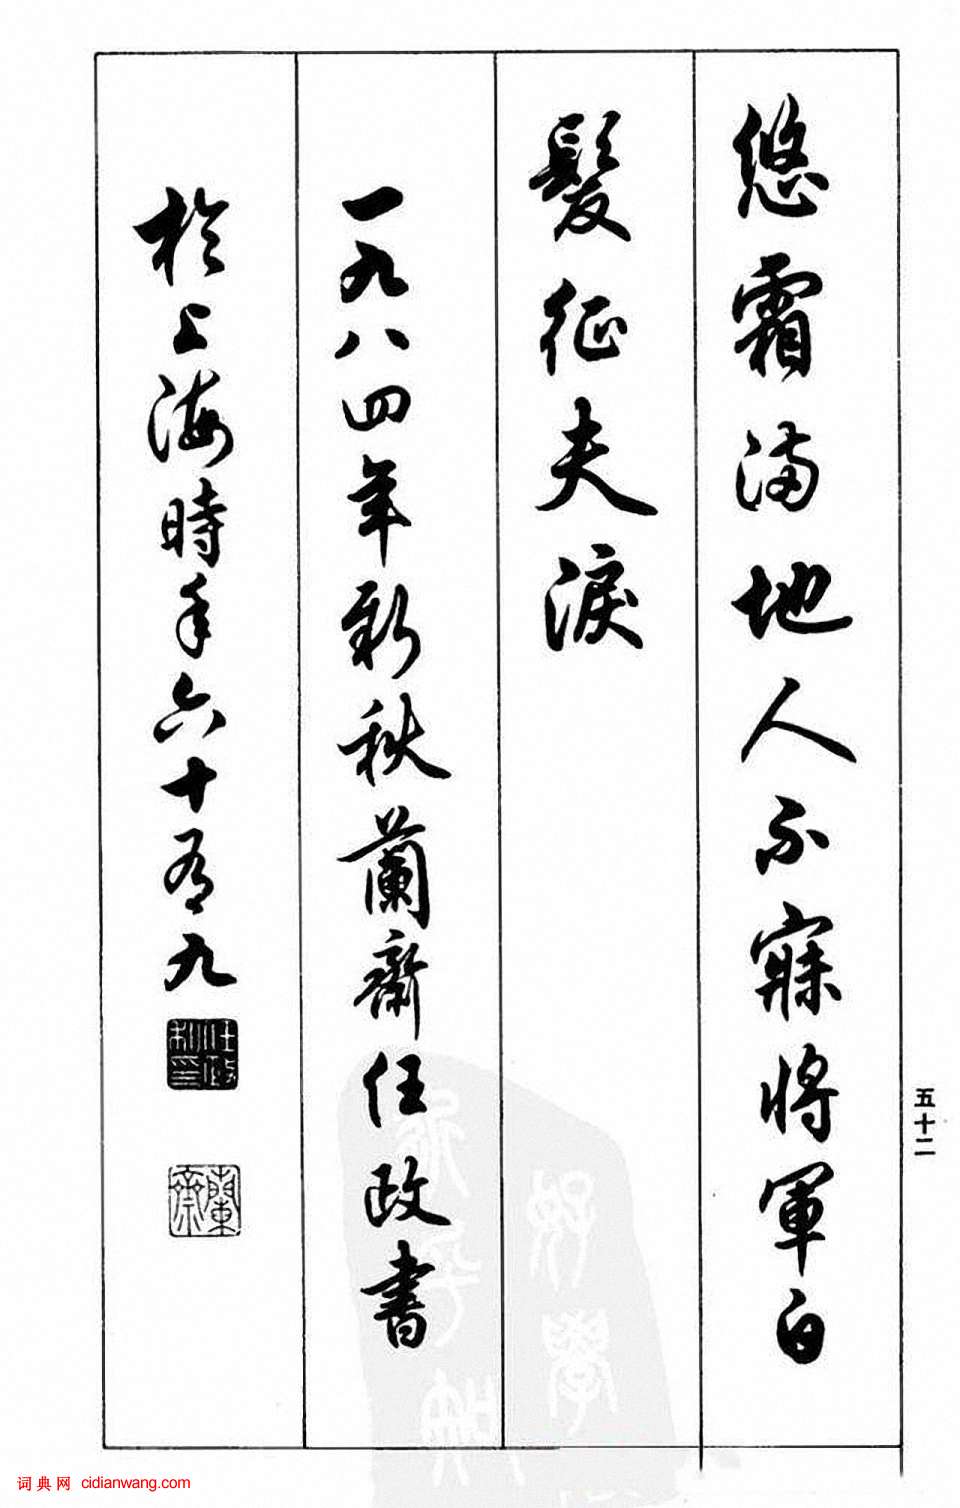 悠霜满地人不寐将軍白
髮征夫淚
一九八四年新秋蘭齋任政書
於上海時年六十有九
任政
私印
蘭齋
五十二
词典网 cidianwang.com